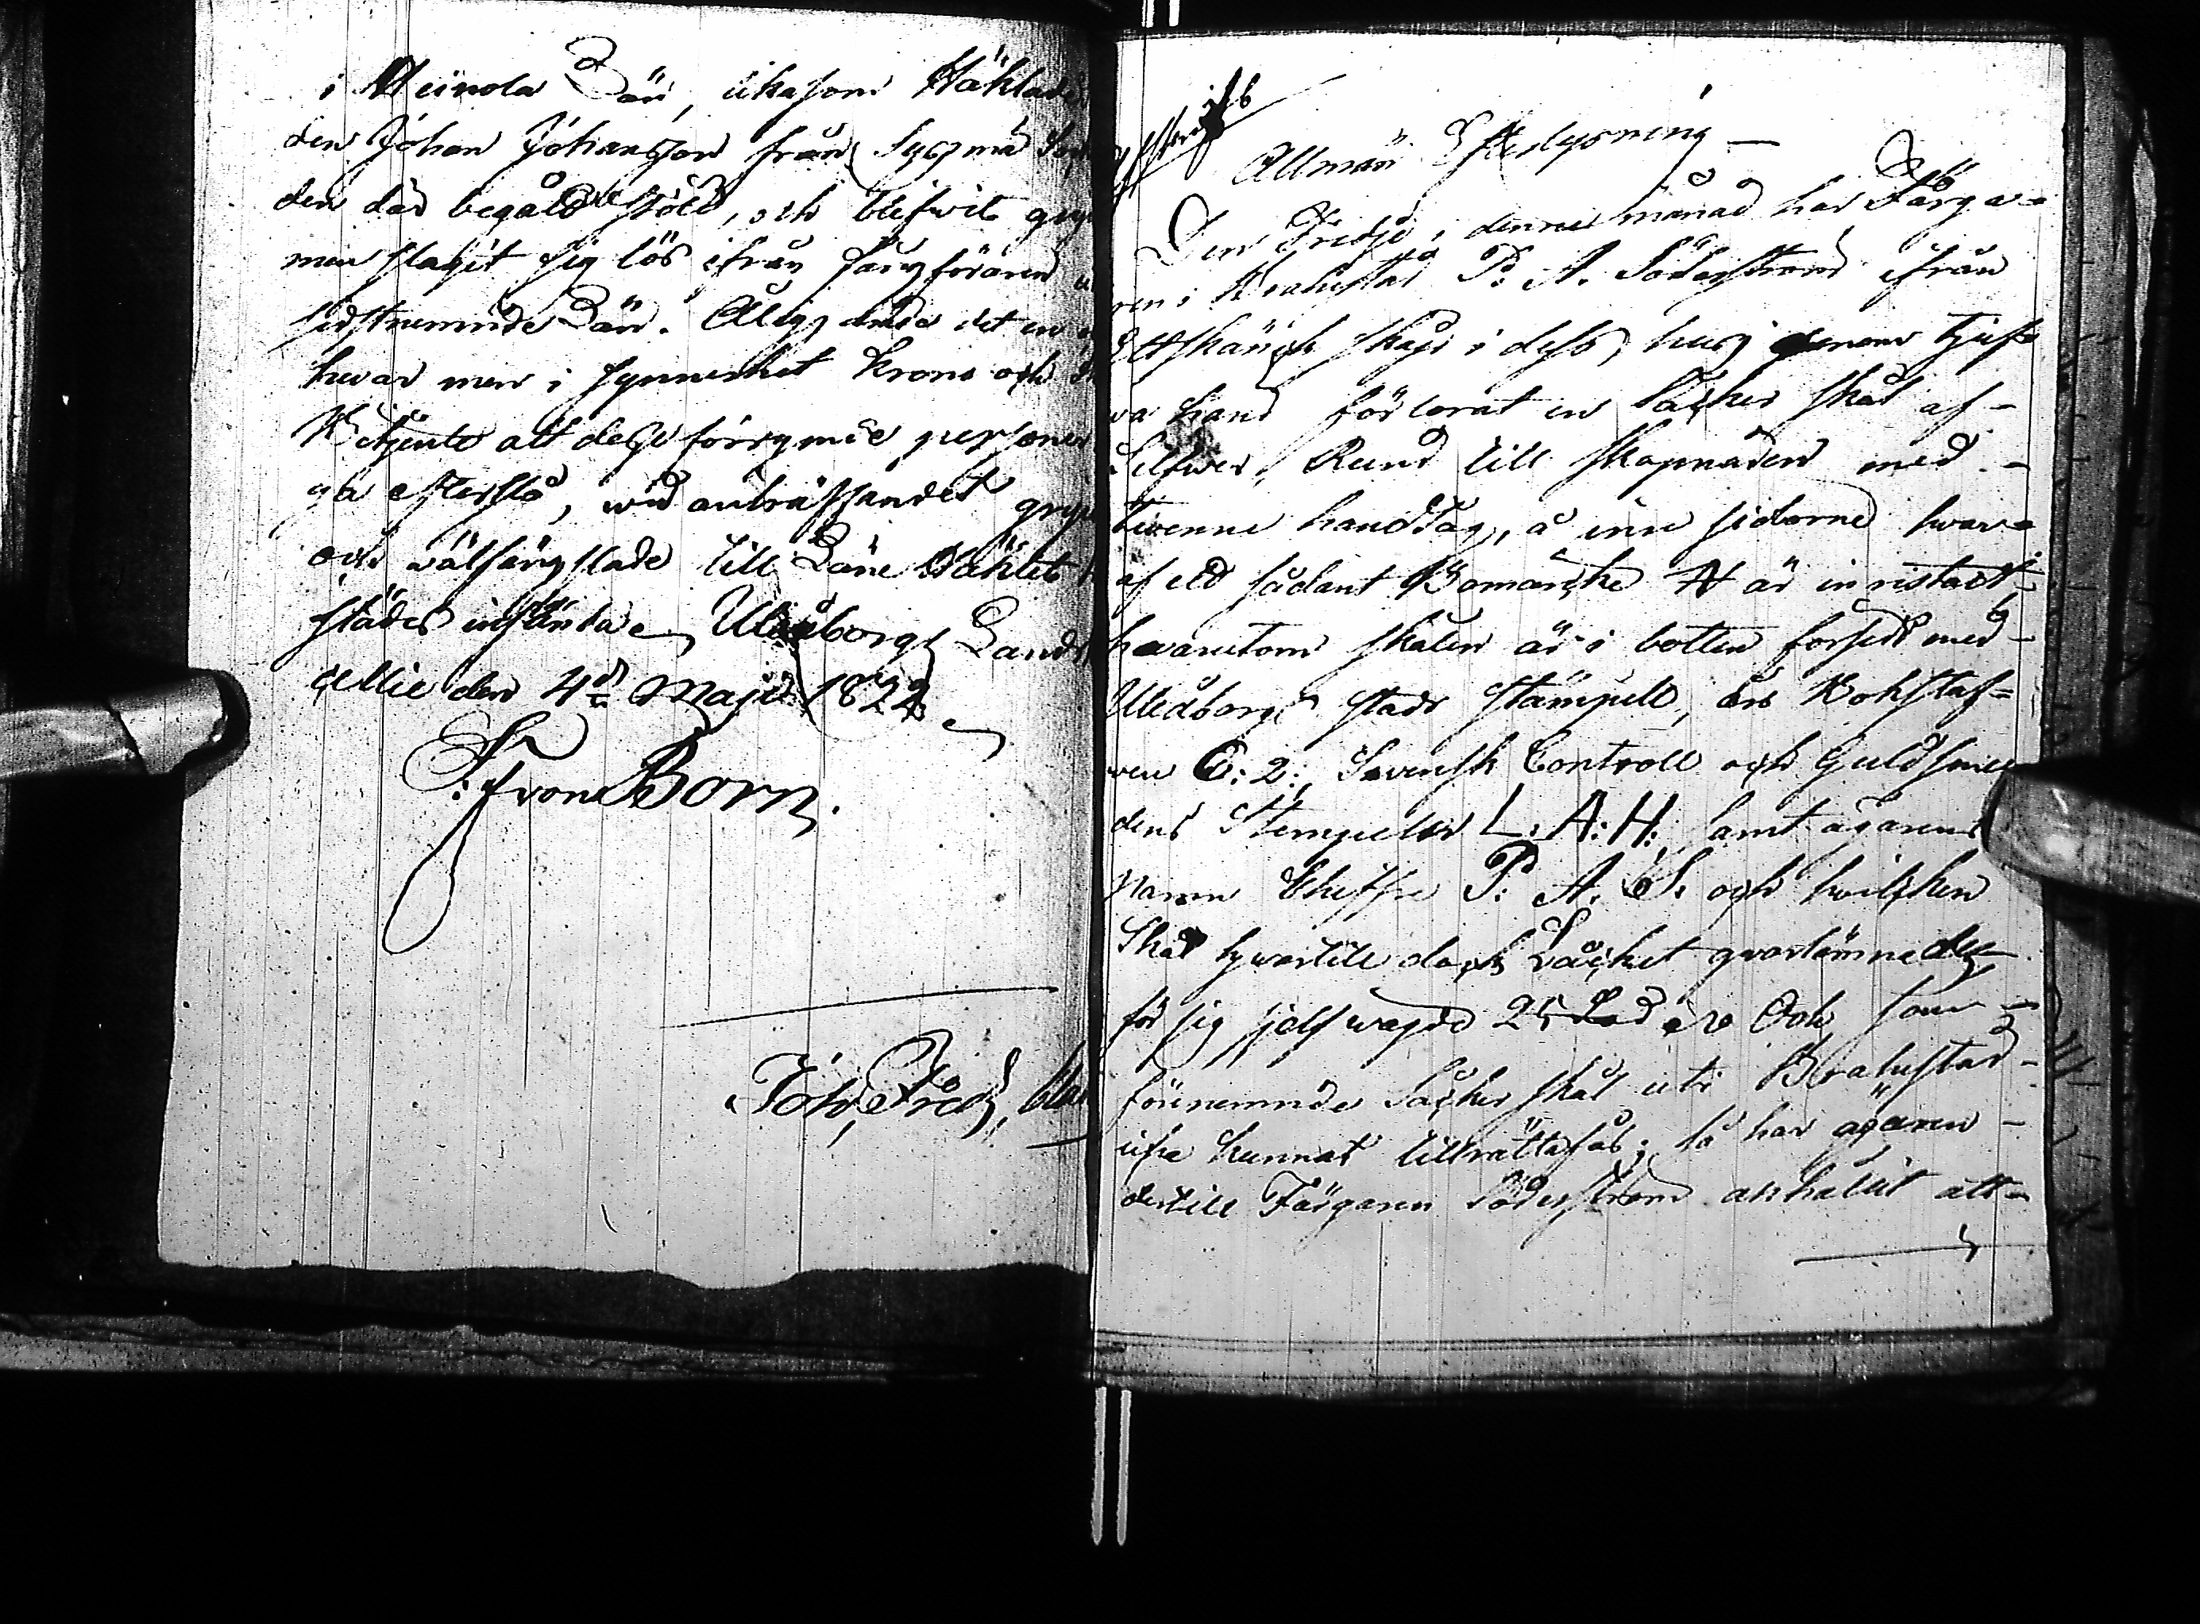 i Län, likasom Häktade
den Johan Johansson från Sysmä
den där begått stöld, och blifwit
men slagit sig lös ifrån fångföraren
sidstnemnde Län. Åliggande det en
hwar men i synnerhet Krono och
Betjente att desse förrymde personer
ga efterslå, wid anträffandet
och wälfängslade till Läne Häktet
städes insända Uleåborgs Lands
cellie den 4de Maji 1822
S: F von Born.
Joh, Fredr,
afskrift
Allmän Efterlysning
Den Tredje, denne månad har Färga-
ren i Brahestad P: A. Söderström ifrån
Ett skänck skåp i dess hus genom tjuf-
wa hand förlorat en Såcker skål af
Silfwer, Rund till skapnaden med
twenne handtag, å inre sidorne hwar-
af ett sådant Bomärcke är inristadt
hwarutom skålen är i botten försedt med
Uleåborgs stads stämpell, års Bokstaf-
wen C: 2: Swensk Controll och Guldsme-
dens Stempeler L: A: H: samt ägarens
Namn Chiffre P: A. S. och hwilcken
Skål hwartill dock Låcket qvarlämnades
för sig sjelf wägde 25 Lod Och som
förenemnde Såcker skål uti Brahestad
icke kunnat tillrättafås; så har ägaren
dertill Färgaren Söderström anhållit att